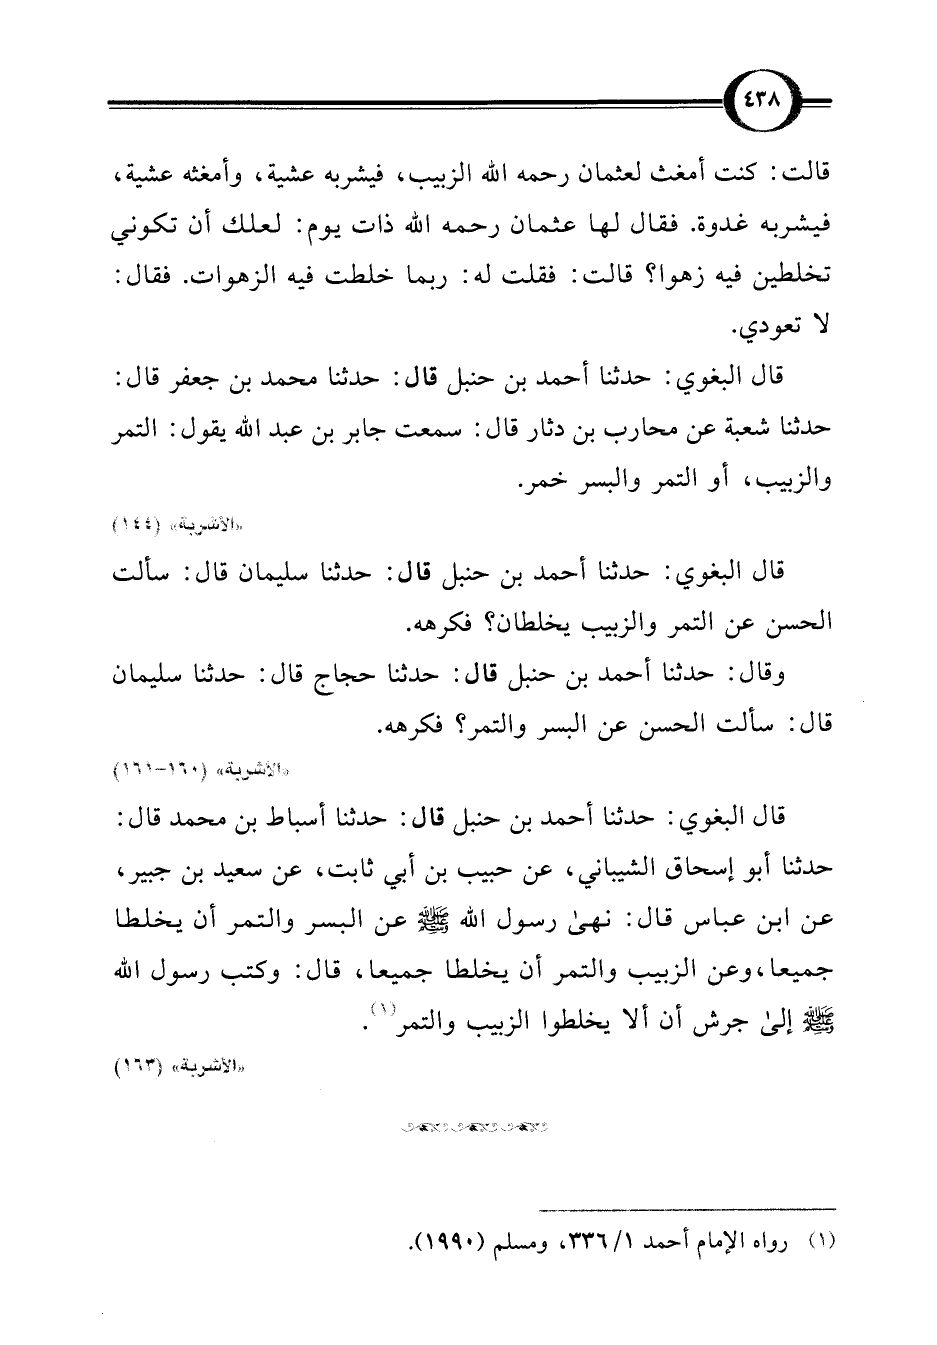 ٤٣٨
قالت: كنت أمغث لعثمان رحمه الله الزبيب، فيشربه عشية، وأمغثه عشية،
فيشربه غدوة. فقال لها عثمان رحمه الله ذات يوم: لعلك أن تكوني
تخلطين فيه زهوا؟ قالت: فقلت له: ربما خلطت فيه الزهوات. فقال:
لا تعودي.
قال البغوي: حدثنا أحمد بن حنبل قال: حدثنا محمد بن جعفر قال:
حدثنا شعبة عن محارب بن دثار قال: سمعت جابر بن عبد الله يقول: التمر
والزبيب، أو التمر والبسر خمر.
«الأشربة» (١٤٤)
قال البغوي: حدثنا أحمد بن حنبل قال: حدثنا سليمان قال: سألت
الحسن عن التمر والزبيب يخلطان؟ فكرهه.
وقال: حدثنا أحمد بن حنبل قال: حدثنا حجاج قال: حدثنا سليمان
قال: سألت الحسن عن البسر والتمر؟ فكرهه.
«الأشربة» (١٦٠-١٦١)
قال البغوي: حدثنا أحمد بن حنبل قال: حدثنا أسباط بن محمد قال:
حدثنا أبو إسحاق الشيباني، عن حبيب بن أبي ثابت، عن سعيد بن جبير،
عن ابن عباس قال: نهىٰ رسول الله ﷺ عن البسر والتمر أن يخلطا
جميعا، وعن الزبيب والتمر أن يخلطا جميعا، قال: وكتب رسول الله
ﷺ إلىٰ جرش أن ألا يخلطوا الزبيب والتمر(١).
«الأشربة» (١٦٣)
(١) رواه الإمام أحمد ١/ ٣٣٦، ومسلم (١٩٩٠).